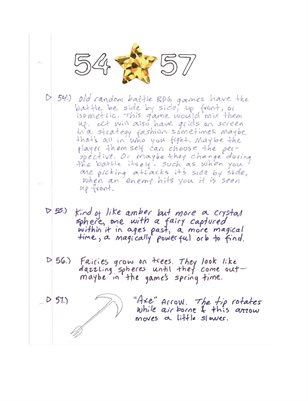 54 57
54.) Old random battle RPG games have the
battle be side by side, up front, or
isometric. This game would mix them
up. It will also have grids on screen
in a strategy fashion sometimes maybe
that's all in who you fight. Maybe the
player them self can choose the per-
spective. Or maybe they change during
the battle itself. Such as when you
are picking attacks it's side by side,
when an enemy hits you it is seen
up front.
55.) Kind of like amber but more a crystal
sphere, one with a fairy captured
within it in ages past, a more magical
time, a magically powerful orb to find.
56.) Fairies grow on trees. They look like
dazzling spheres until they come out—
maybe in the game's spring time.
57.) "Axe" Arrow. The tip rotates
while airborne & this arrow
moves a little slower.